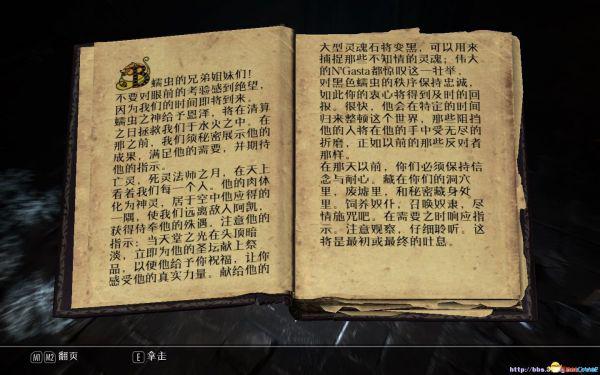 B
蠕虫的兄弟姐妹们！
不要对眼前的考验感到绝望，
因为我们的时间即将到来，
蠕虫之神给予恩泽，将在清算
之日拯救我们于水火之中。在
那之前，我们须秘密展示他的
成果，满足他的需要，并期待
他的指示。
死灵法师之月，在天上
亡灵，
看着我们每一个人。他的肉体
化为神灵，居于空中他应得的
一隅，使我们远离敌人阿凯，
获得侍奉他的殊遇。注意他的
指示：当天堂之光在头顶暗
淡，立即为他的圣坛献上祭
品，以便他给予你祝福，让你
感受他的真实力量。献给他的
大型灵魂石将变黑，可以用来
捕捉那些不知情的灵魂；伟大
的N'Gasta都惊叹这一壮举。
对黑色蠕虫的秩序保持忠诚，
如此你的衷心将得到及时的回
报。很快，他会在特定的时间
归来整顿这个世界，那些阻挡
他的人将在他的手中受无尽的
折磨，正如以前的那些反对者
那样。
在那天以前，你们必须保持信
念与耐心。藏在你们的洞穴
里，废墟里，和秘密藏身处
里。饲养奴仆，召唤奴隶，尽
情施咒吧。在需要之时响应指
示。注意观察，仔细聆听。这
将是最初或最终的吐息。
M1 M2 翻页
E 拿走